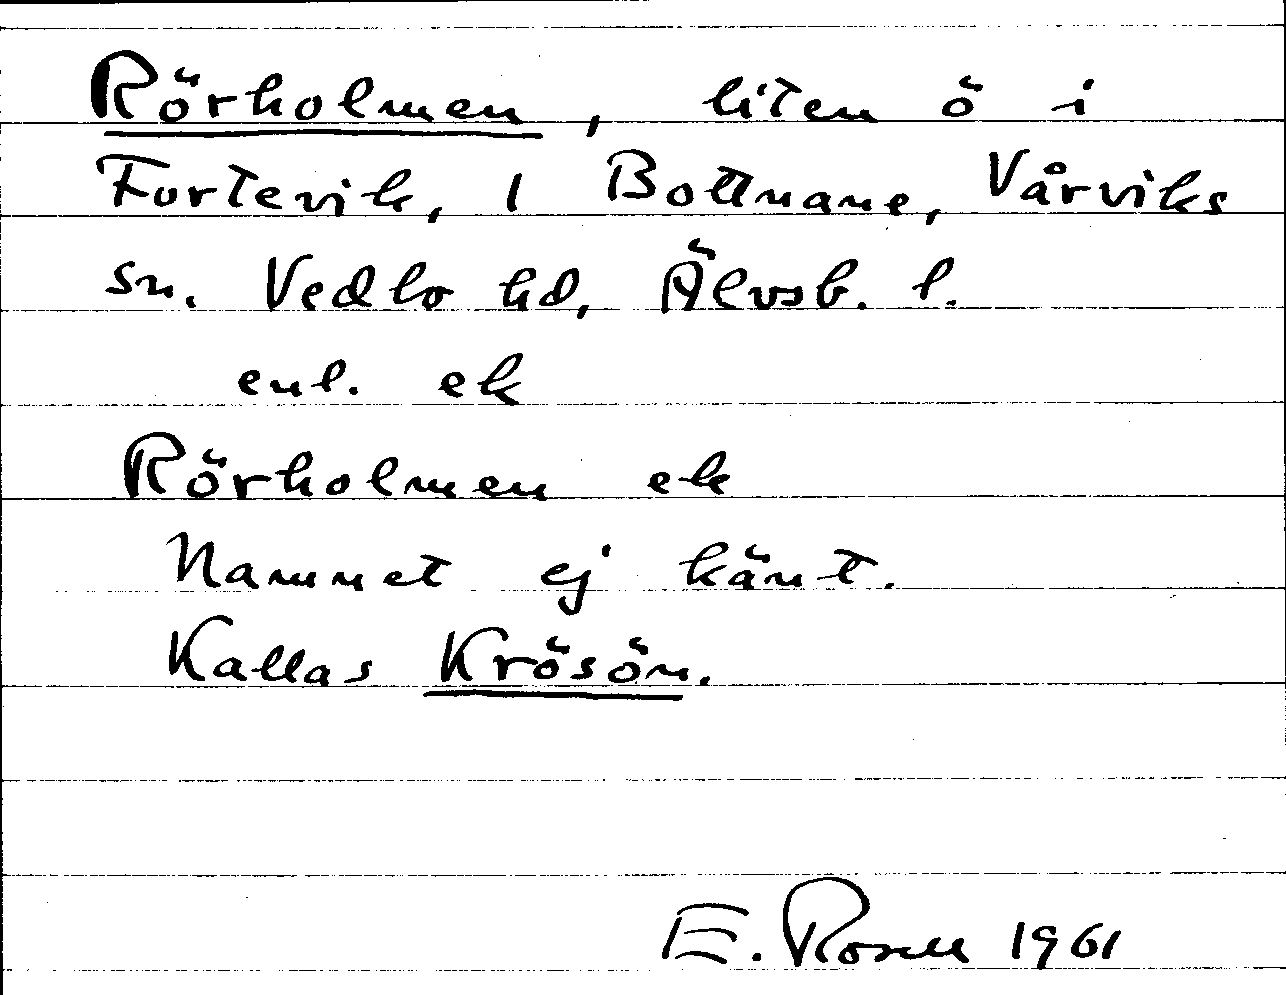 Rörholmen, liten ö i
Fortevik, 1 Bottnane, Vårviks
sn. Vedbo hd, Älvsb. l.
enl. ek
Rörholmen ek
Namnet ej känt.
Kallas Krösön.
E. Rosell 1961